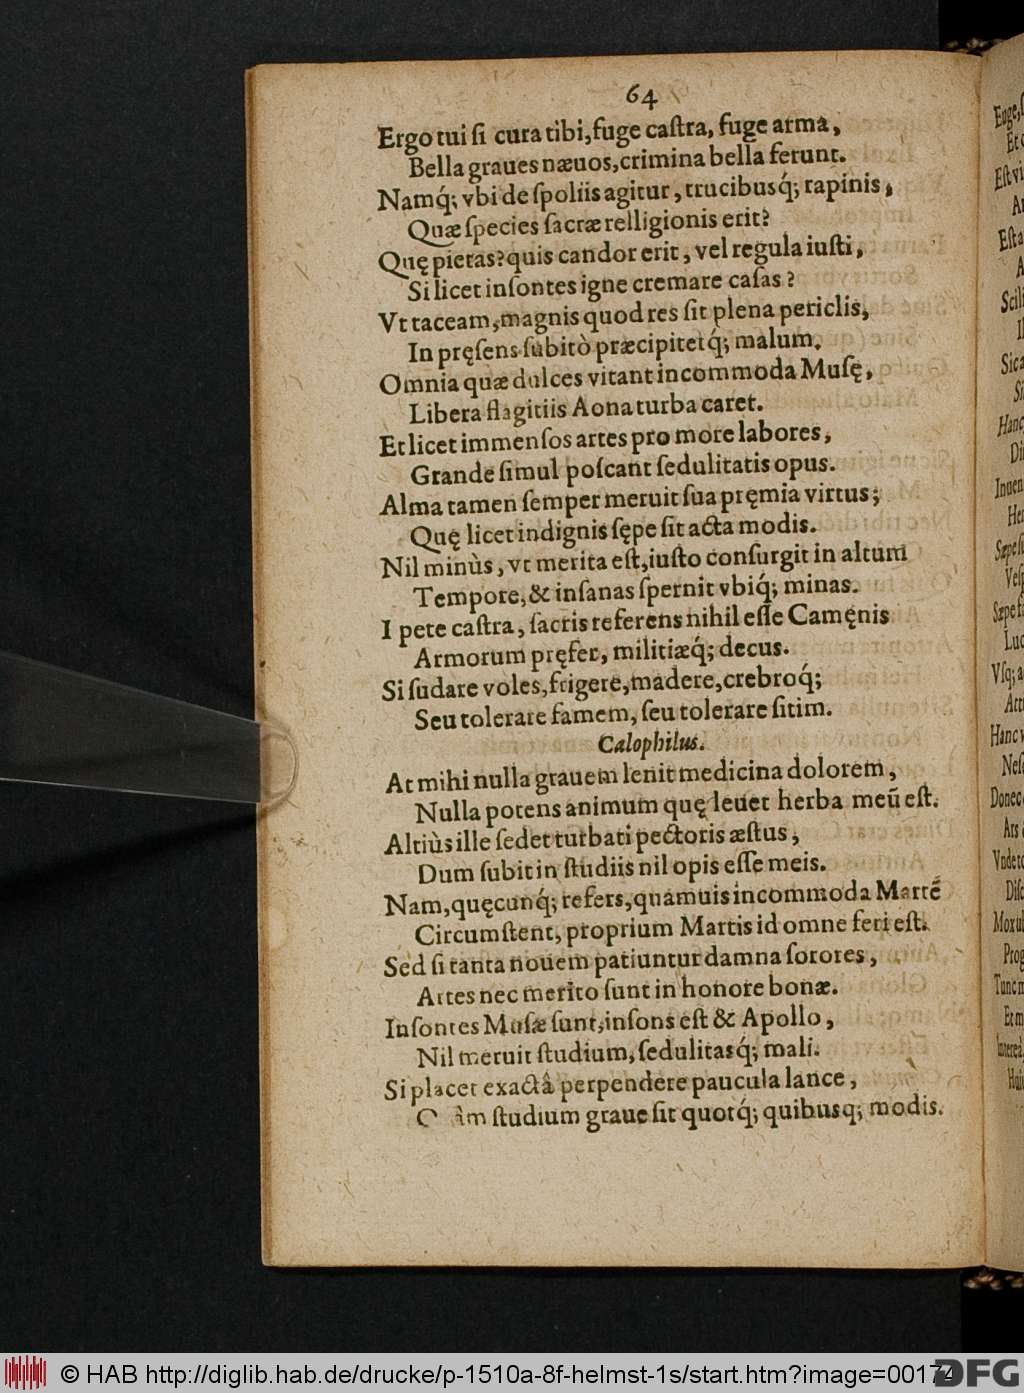 64
Ergo tui si cura tibi, fuge castra, fuge arma,
Bella graues næuos, crimina bella ferunt.
Namq́; vbi de spoliis agitur, trucibusq́; rapinis,
Quæ species sacræ relligionis erit?
Quę pietas? quis candor erit, vel regula iusti,
Si licet insontes igne cremare casas?
Vt taceam, magnis quod res sit plena periclis,
In pręsens subitò præcipitetq́; malum.
Omnia quæ dulces vitant incommoda Musę,
Libera flagitiis Aona turba caret.
Et licet immensos artes pro more labores,
Grande simul poscant sedulitatis opus.
Alma tamen semper meruit sua pręmia virtus;
Quę licet indignis sępe sit acta modis.
Nil minùs, vt merita est, iusto consurgit in altum
Tempore, & insanas spernit vbiq́; minas.
I pete castra, sacris referens nihil esse Camęnis
Armorum pręfer, militiæq́; decus.
Si sudare voles, frigere, madere, crebroq́;
Seu tolerare famem, seu tolerare sitim.
Calophilus.
At mihi nulla grauem lenit medicina dolorem,
Nulla potens animum quę leuet herba meũ est.
Altiùs ille sedet turbati pectoris æstus,
Dum subit in studiis nil opis esse meis.
Nam, quęcunq́; refers, quamuis incommoda Martẽ
Circumstent, proprium Martis id omne feri est.
Sed si tanta nouem patiuntur damna sorores,
Artes nec merito sunt in honore bonæ.
Insontes Musæ sunt, insons est & Apollo,
Nil meruit studium, sedulitasq́; mali.
Si placet exactâ perpendere paucula lance,
studium graue sit quotq́; quibusq; modis.
© HAB http://diglib.hab.de/drucke/p-1510a-8f-helmst-1s/start.htm?image=00174
DFG